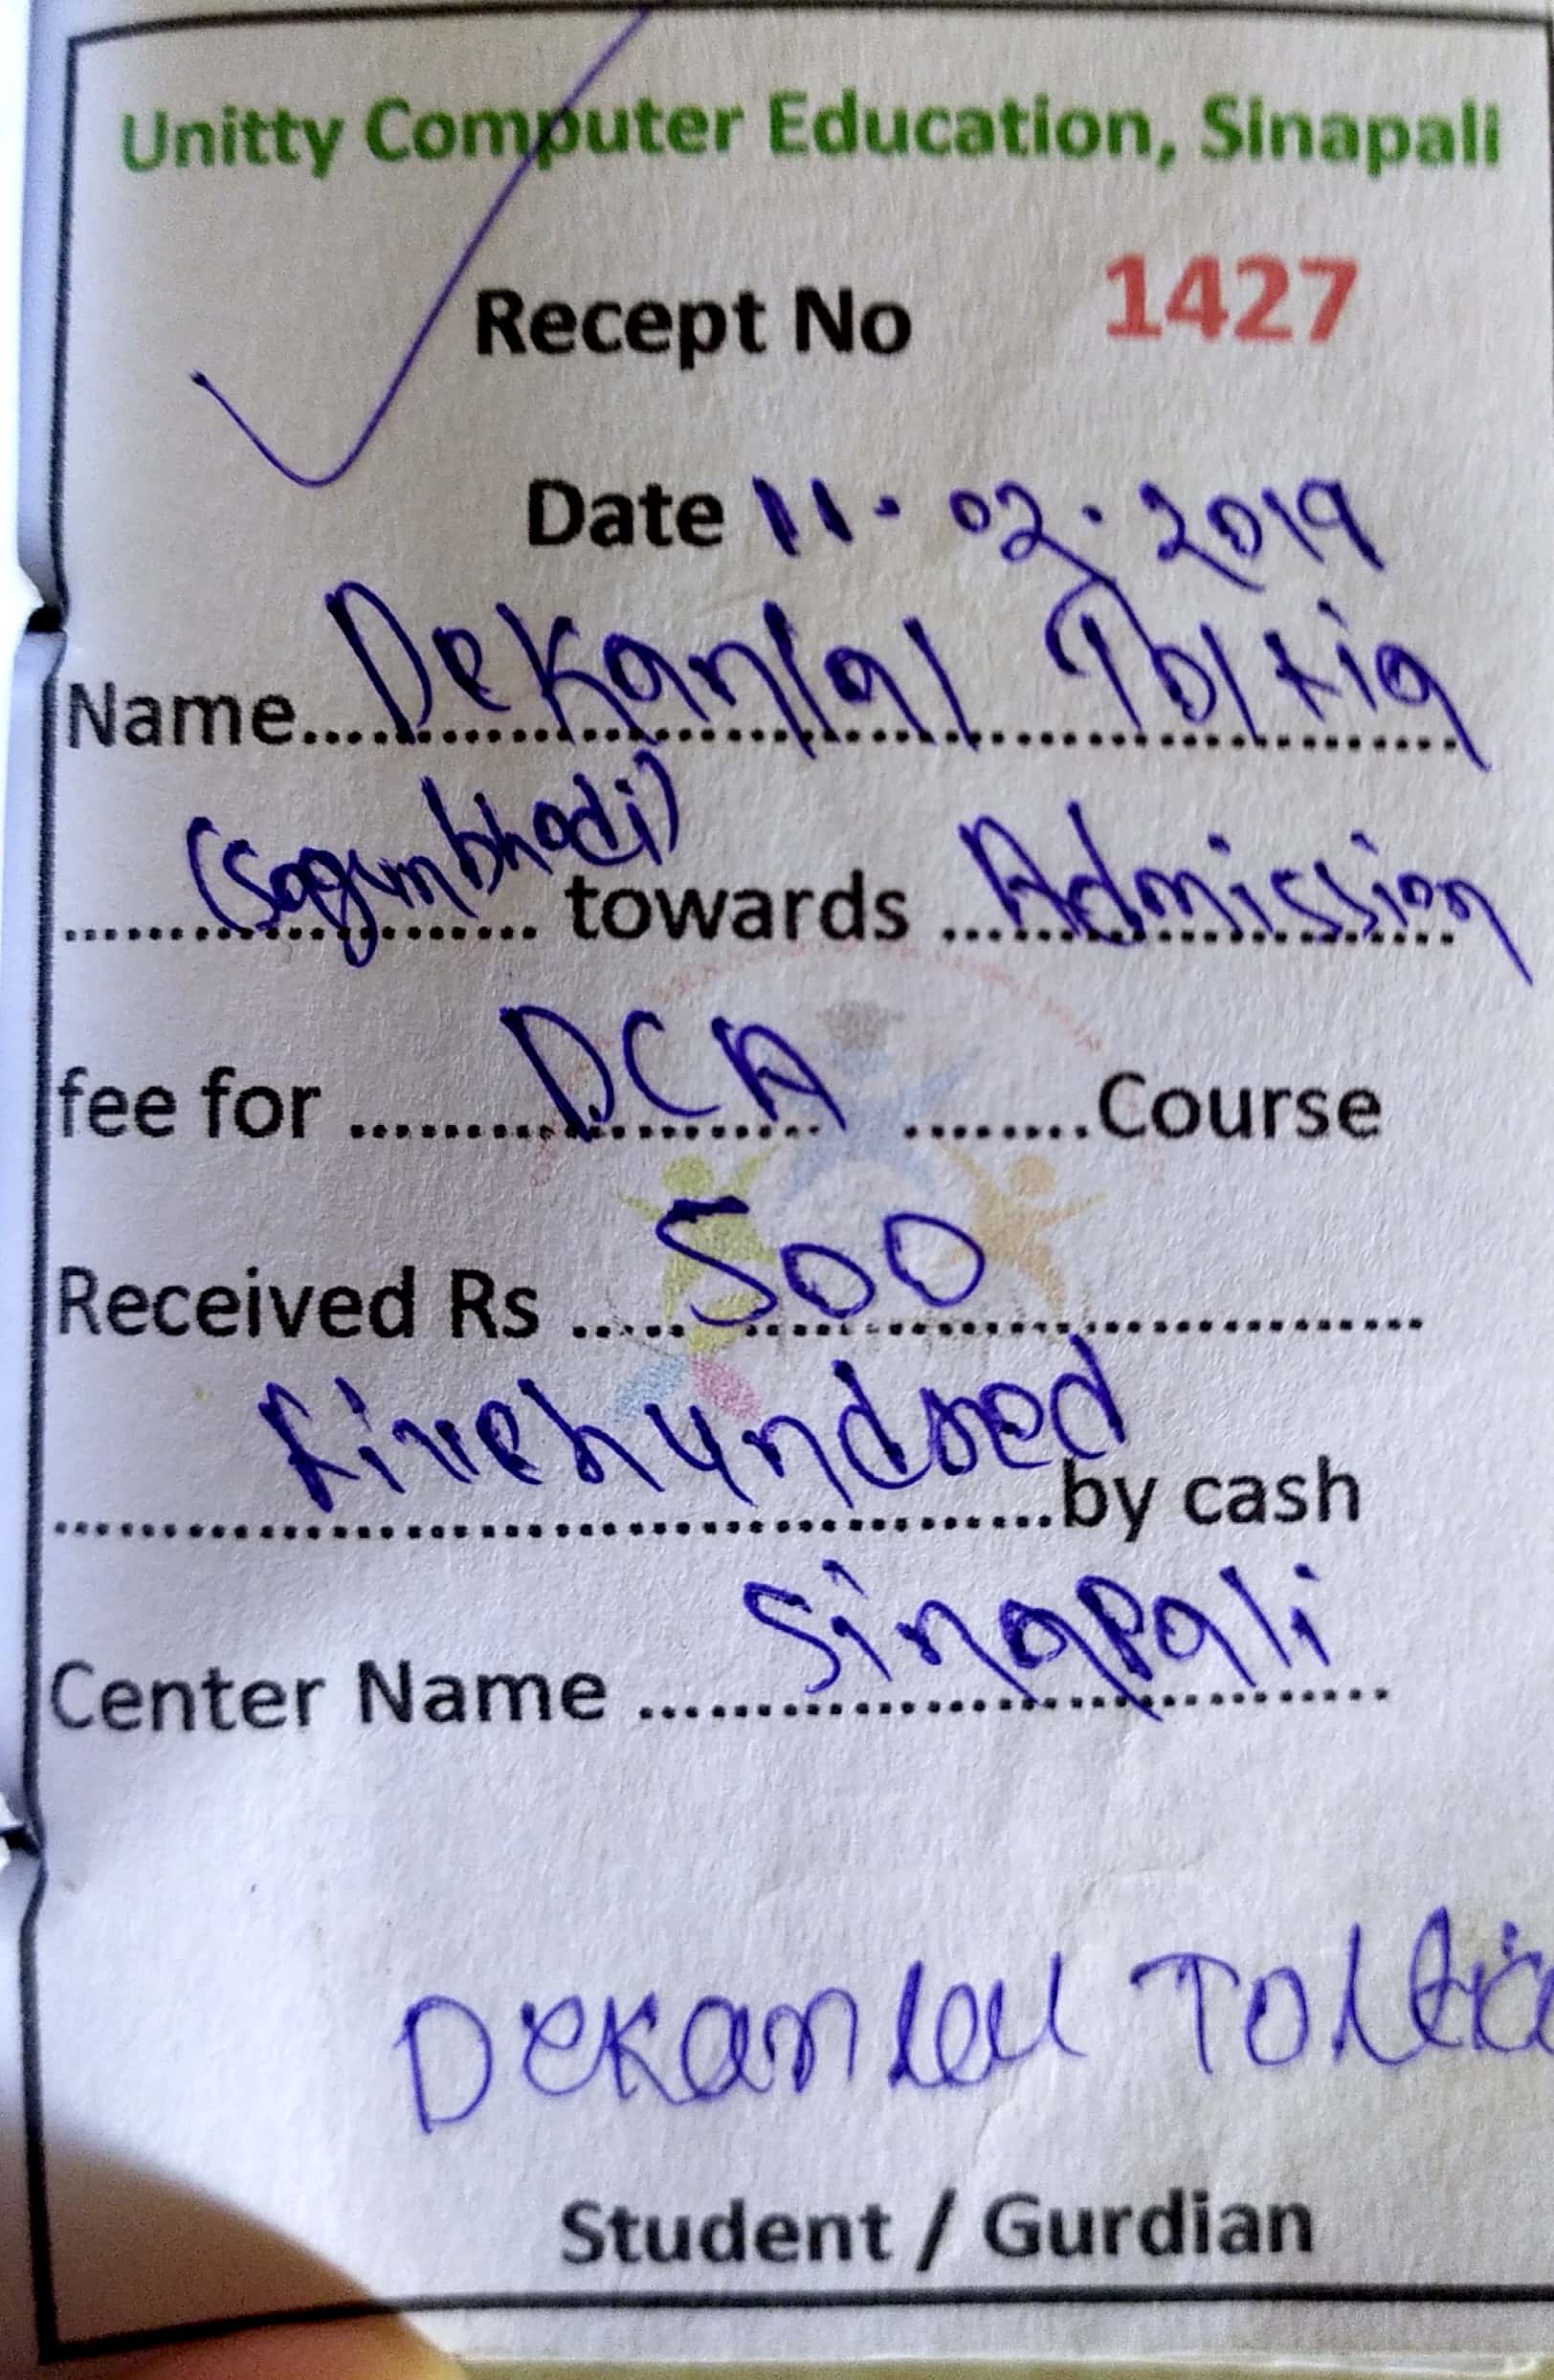 Unitty Computer Education, Sinapali
Recept No 1427
Date 11.02.2019
Name....Dekanlal Toltia
(Sagunbhadi) towards Admission
fee for DCA Course
Received Rs 500
Fivehundred by cash
Center Name Sinapali
Dekanlal Toltia
Student / Gurdian